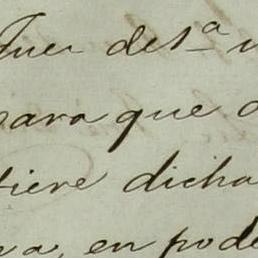 Juez des.ta
para que
tiere dicha
en pode